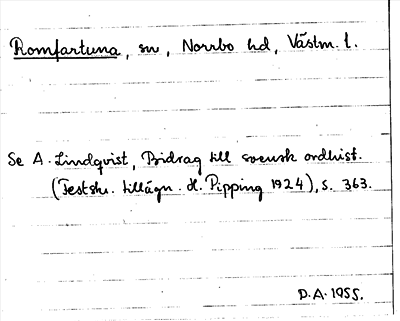 Romfartuna, sn, Norrbo hd, Västm. l.
Se A. Lindqvist, Bidrag till svensk ordhist.
(Festskr. tillägn. H. Pipping 1924), s. 363.
D.A. 1955.